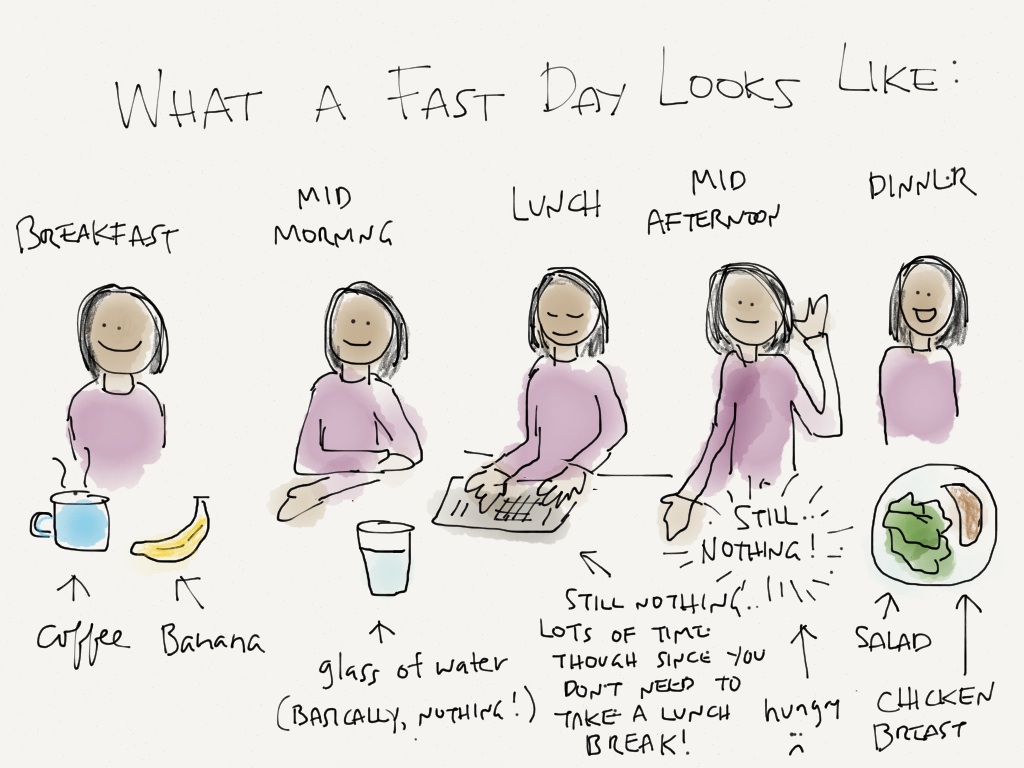 WHAT A FAST DAY LOOKS LIKE:
BREAKFAST
MID
MORNING
LUNCH
MID
AFTERNOON
DINNER
coffee
Banana
glass of water
(BASICALLY, NOTHING!)
STILL NOTHING..
LOTS OF TIME
THOUGH SINCE YOU
DON'T NEED TO
TAKE A LUNCH
BREAK!
STILL
NOTHING!
hungry
SALAD
CHICKEN
BREAST